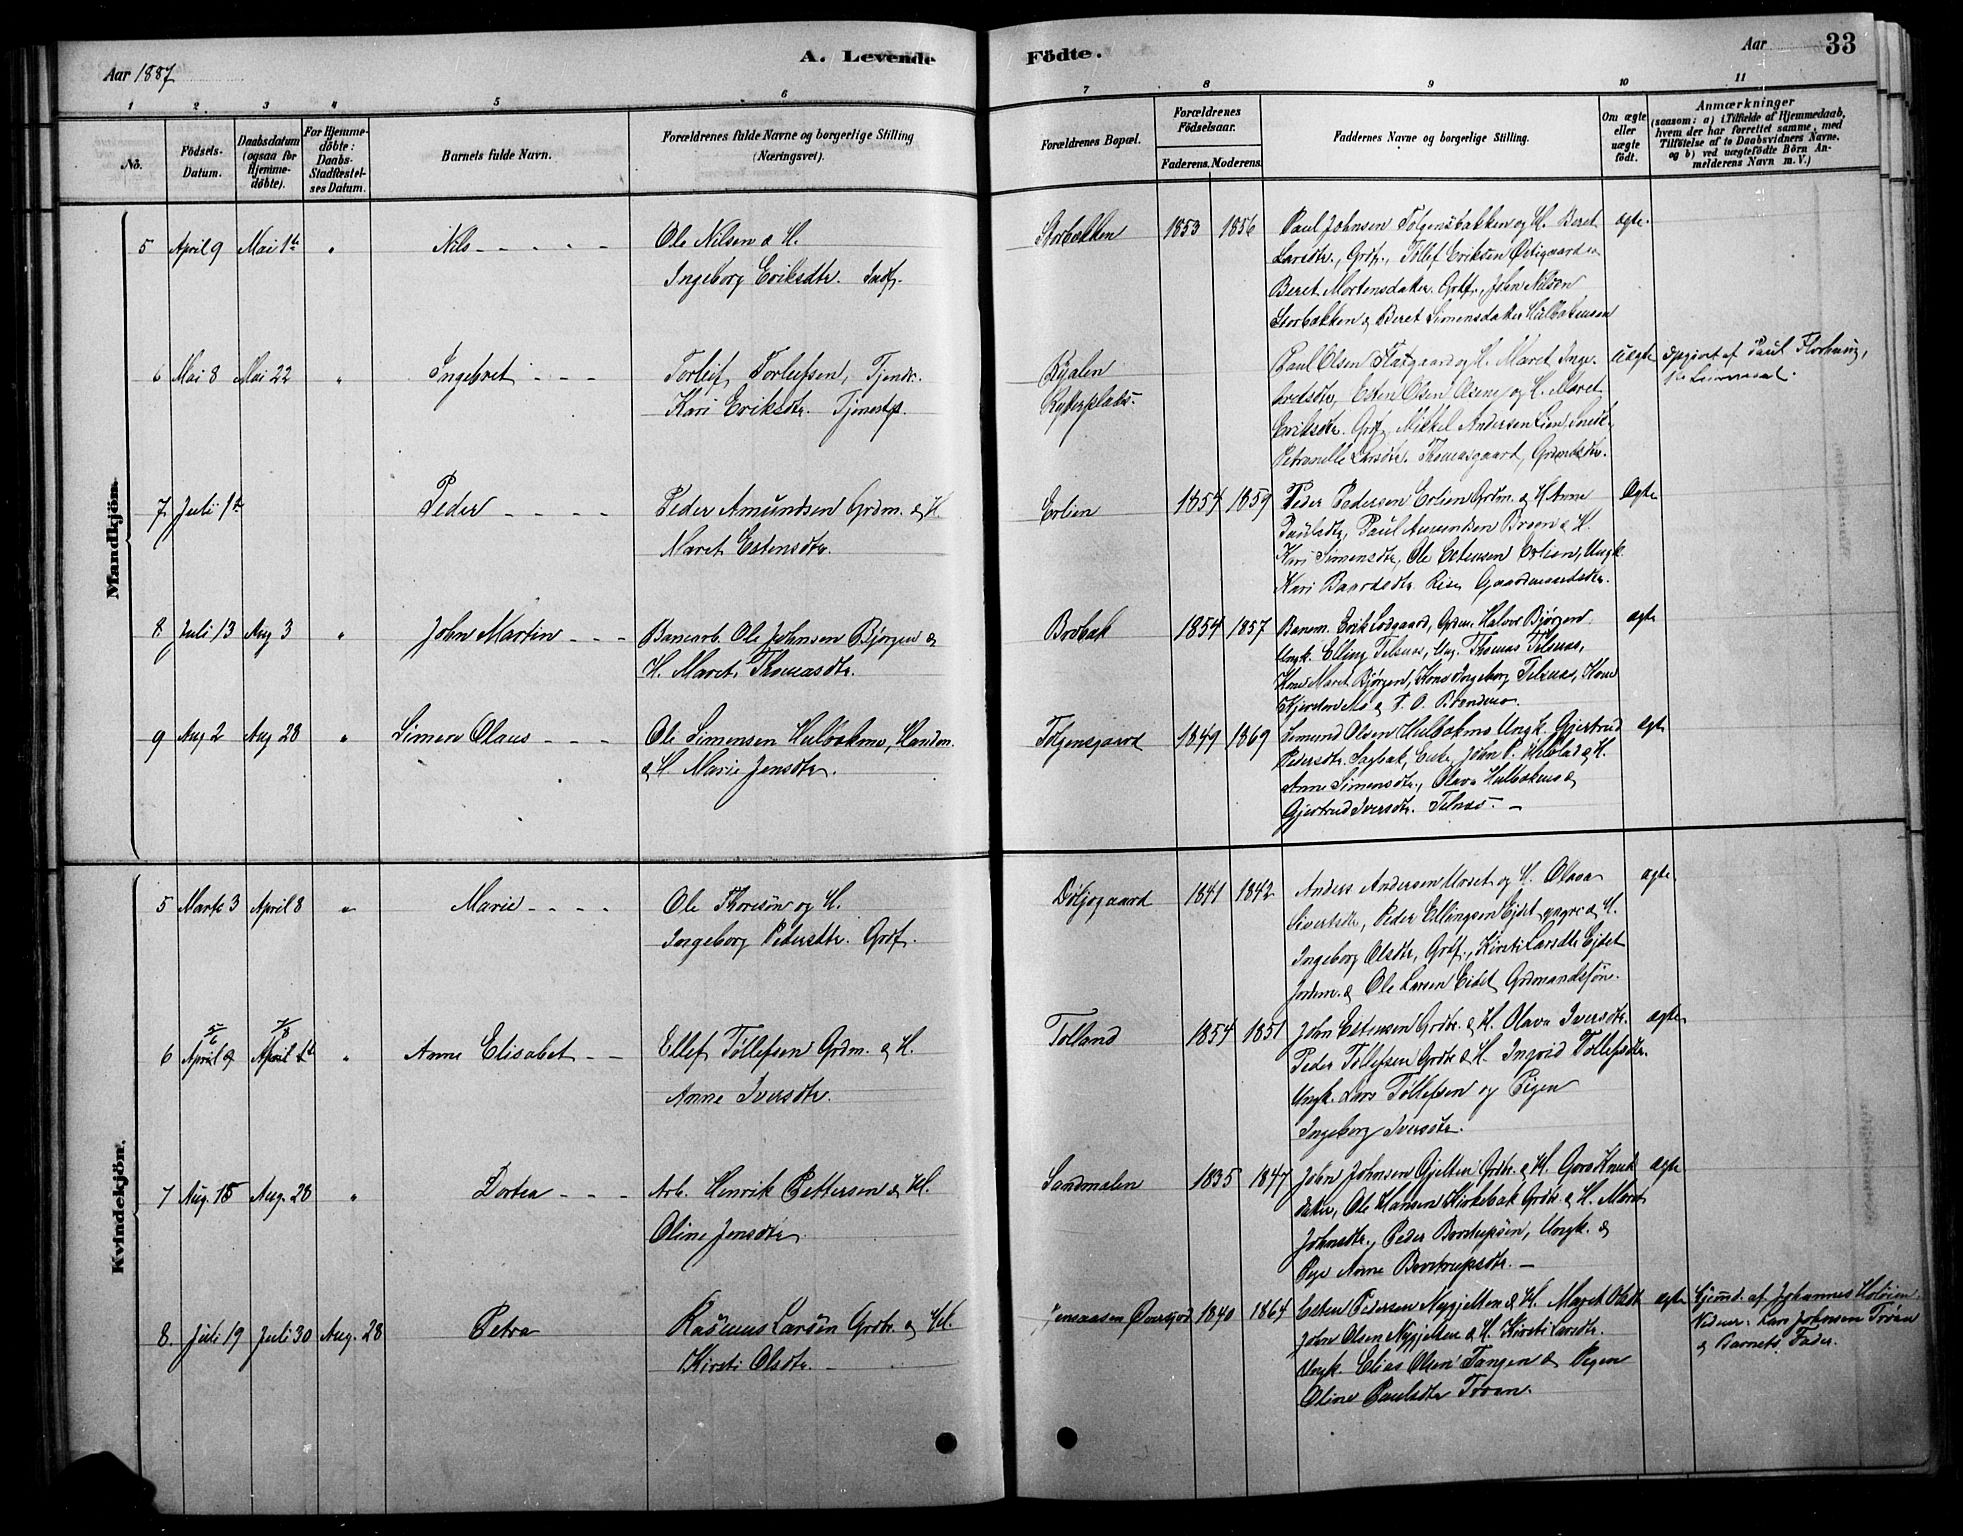 Aar 1887
A. Levende
Födte.
Aar
33
1 2 3 4 5 6 7 8 9 10 11
No.
Födsels-
Datum.
Daabsdatum
(ogsaa for
Hjemme-
döbte).
For Hjemme-
döbte:
Daabs-
Stadfæstel-
ses Datum.
Barnets fulde Navn.
Forældrenes fulde Navne og borgerlige Stilling
(Næringsvei).
Forældrenes Bopæl.
Forældrenes
Födselsaar.
Faderens. Moderens.
Faddernes Navne og borgerlige Stilling.
Om ægte
eller
uægte
födt.
Anmærkninger
(saasom: a) i Tilfælde af Hjemmedaab,
hvem der har forrettet samme, med
Tilföielse af to Daabsvidners Navne.
og b) ved uægtefödte Börn An-
melderens Navn m. V.)
Mandkjön.
5 April 9 Mai 1ste " Nils - - - - -
Ole Nilsen & H.
Ingeborg Eriksdtr. Indf.
Storbækken 1853 1856
Paul Johnsen Tolgensbakken og H. Beret
Larsdtr., Grdf., Tollef Eriksen Østigaarden
Beret Mortensdatter Grdf., John Nilsen
Storbækken & Beret Simensdatter Hulbækmoen
ægte.
6 Mai 8 Mai 22 " Ingebret - - -
Torleif Torleifsen, Tjendr.
Kari Eriksdtr. Tjenestp.
Paul Olsen Flatgaard og H. Maret Inge-
bretsdtr, Esten Olsen Olsene og H. Maret
Eriksdtr. Grdf, Mikkel Andersen Lien, Snedk.,
Petronelle Larsdtr. Thomasgaard, Grdmdsdtr.
uægte
Opgivet af Paul
7 Juli 1ste Peder - - - -
Peder Amundsen Grdm. & H.
Maret Estensdtr.
Erlien 1854 1859
Peder Pedersen Erlien Grdm. & H. Anne
Paulsdtr, Paul Amundsen Broen & H.
Kari Simensdtr, Ole Estensen Erlien, Ungk.
Kari Baardsdtr. Risen Gaardmandsdtr.
Ægte
8 Juli 13 Aug 3 " John Martin - - -
Banearb. Ole Johnsen Bjørgen &
H. Maret Thomasdtr.
Brobak 1854 1857
Banem. Erik Lodgaard, Grdm. Halvor Bjørgen
Ungk. Elling Telsnes, Ung. Thomas Telsnes,
Kone Maret Bjørgen, Kone Ingeborg Telsnes, Kone
Kjersten Mo & T. O. Brændmo.
ægte
9 Aug 2 Aug 28 " Simen Olaus - - -
Ole Simensen Hulbækmo, Handm.
& H Marie Jensdtr.
Tolgensgaard 1849 1869
Semund Olsen Hulbækmo Ungk. Gjertrud
Pedersdtr. Sagbak, Enke, John P. &. H.
Anne Simensdtr., Olava Hulbækmo &
Gjertrud Iversdtr. Telnes. -
ægte
Kvindekjön.
5 Marts 3 April 8 " Marie - - - -
Ole Thoresøn og H.
Ingeborg Pedersdtr. Grdf.
Døljogaard 1841 1842
Anders Andersen Moset og H. Olava
Sivertsdtr, Peder Ellingsen Eidet yngre & H.
Ingeborg Olsdtr, Grdf., Kirsti Larsdtr Eidet
Jordem. & Ole Larsen Eidet Grdmandssøn.
ægte.
5/6 7/8
6 April 9 April 1ste " Anne Elisabet - -
Ellef Tøllefsen Grdm. & H.
Anne Iversdtr.
Tolland 1854 1851
John Estensen Grdbr. & H. Olava Iversdtr.
Peder Tøllefsen Grdbr & H. Ingrid Tøllefsdtr.
Ungk. Lars Tøllefsen og Pigen
Ingeborg Iversdtr.
ægte
7 Aug. 15 Aug. 28 " Dortea - - -
Arb. Henrik Pettersen & H.
Oline Jensdtr.
Sandmælen 1835 1847
John Johnsen Gjelten Grdbr. & H. Goro Knuds
datter, Ole Hansen Kirkebak Grdbr. & H. Maret
Johnsdtr., Peder Bordrupsen, Ungk. &
Pige Anne Bordrupsdtr. -
ægte
8. Juli 19 Juli 30 Aug. 28 Petra
Rasmus Larsen Grdbr. & H.
Kirsti Olsdtr. -
1840 1864
Esten Pedersen Nygjelten & H. Maret Olsdtr
John Olsen Nygjelten & H. Kirsti Larsdtr.
Ungk. Elias Olsen Tangen & Pigen
Oline Paulsdtr Troen.
ægte
Hjemd. af Johannes Holøien.
Vidner: Lars Johnsen Trøen
& Barnets Fader.